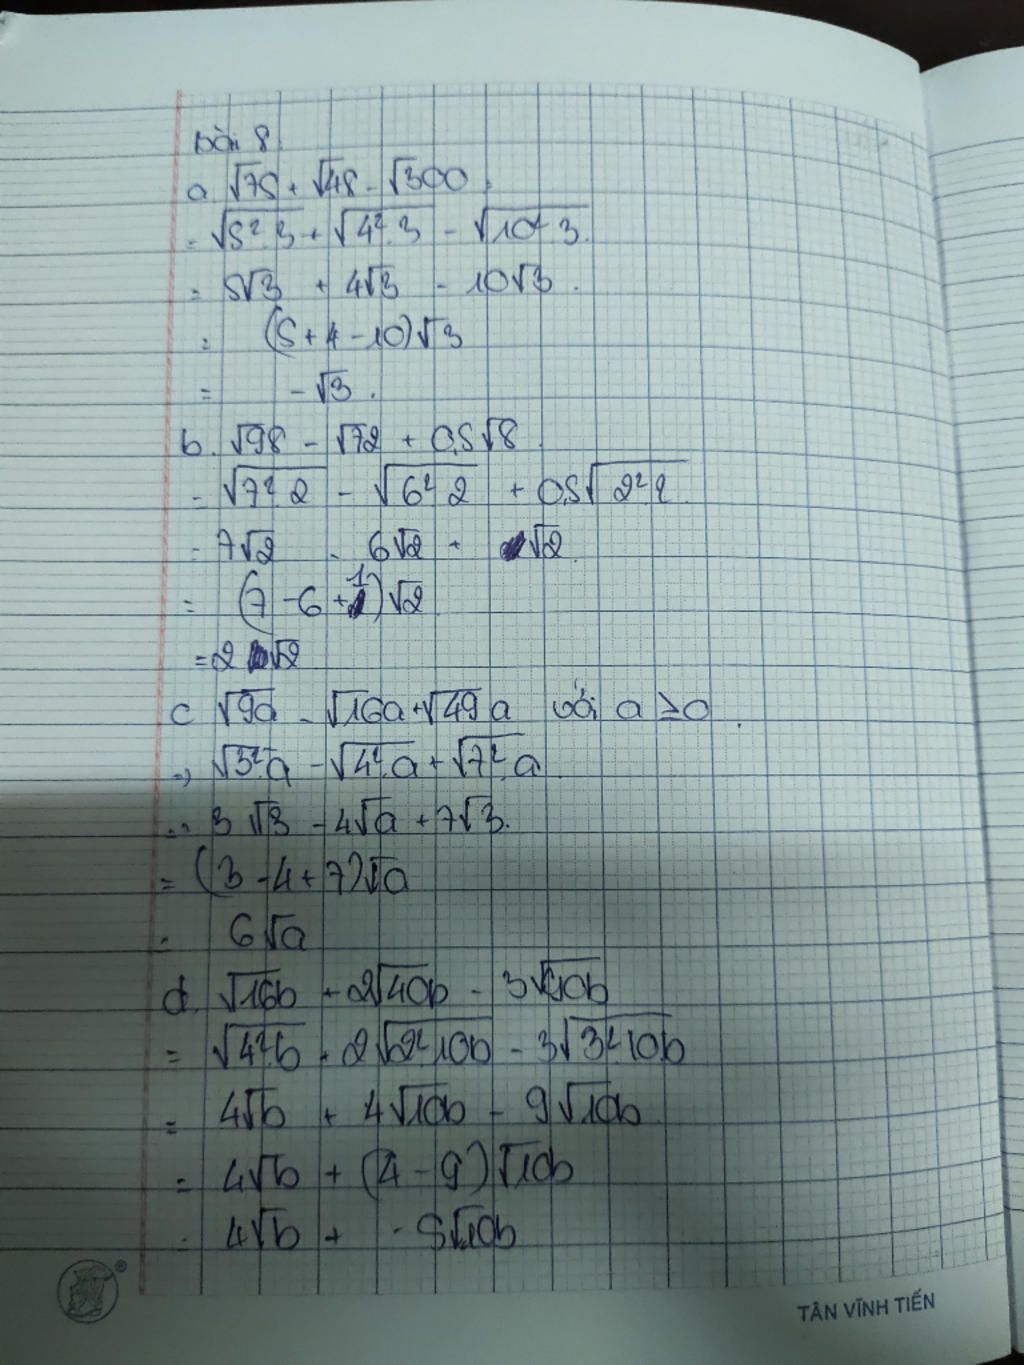 Bài 8
a. √75 + √48 - √300.
= √5².3 + √4².3 - √10².3.
= 5√3 + 4√3 - 10√3.
= (5 + 4 - 10)√3
= -√3.
b. √98 - √72 + 0,5√8.
= √7².2 - √6².2 + 0,5√2².2
= 7√2 - 6√2 + √2.
= (7 - 6 + 1)√2
= 2√2
c √9a - √16a + √49a với a ≥ 0.
= √3².a - √4².a + √7².a
= 3√3 - 4√a + 7√3.
= (3 - 4 + 7)√a
= 6√a
d. √16b + 2√40b - 3√90b
= √4².b + 2√2².10b - 3√3².10b
= 4√b + 4√10b - 9√10b
= 4√b + (4 - 9)√10b
= 4√b + -5√10b
®
TÂN VĨNH TIẾN